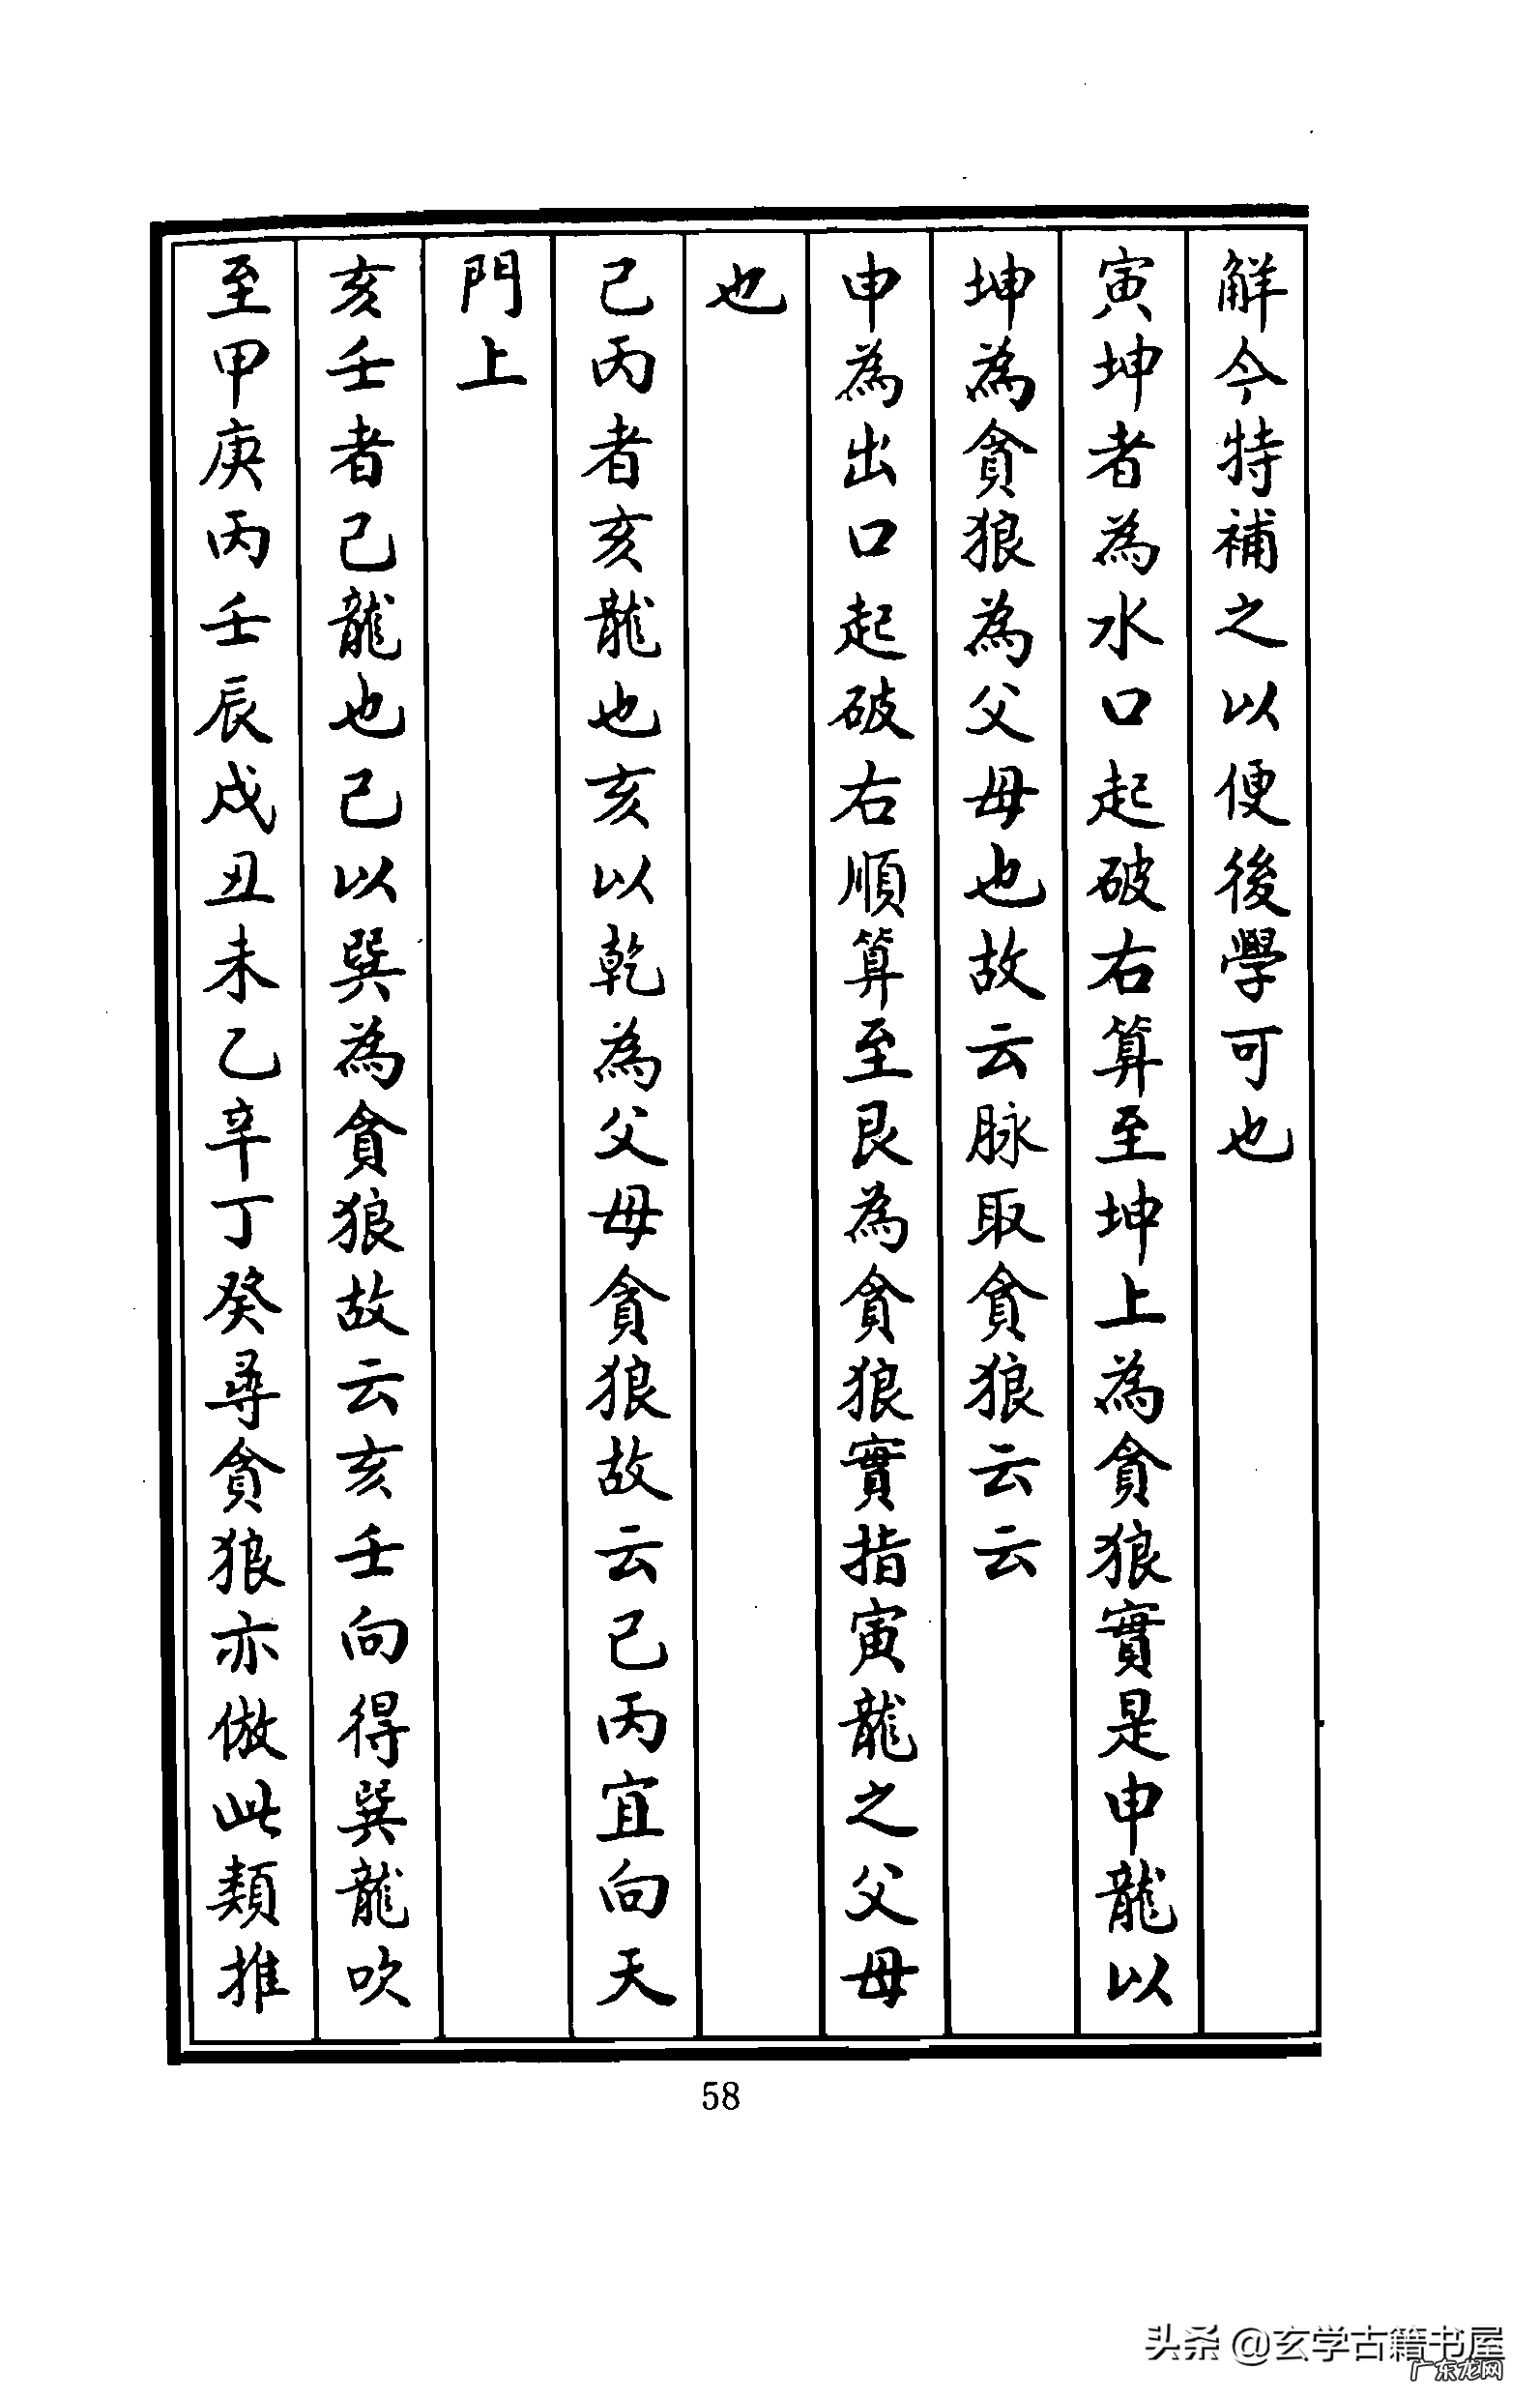 解今特補之以便後學可也
寅坤者為水口起破右算至坤上為貪狼實是申龍以
坤為貪狼為父母也故云脉取貪狼云云
申為出口起破右順算至艮為貪狼實指寅龍之父母
也
己丙者亥龍也亥以乾為父母貪狼故云己丙宜向天
門上
亥壬者己龍也己以巽為貪狼故云亥壬向得巽龍吹
至甲庚丙壬辰戍丑未乙辛丁癸尋貪狼亦倣此類推
58
头条 @玄学古籍书屋
广东龙网